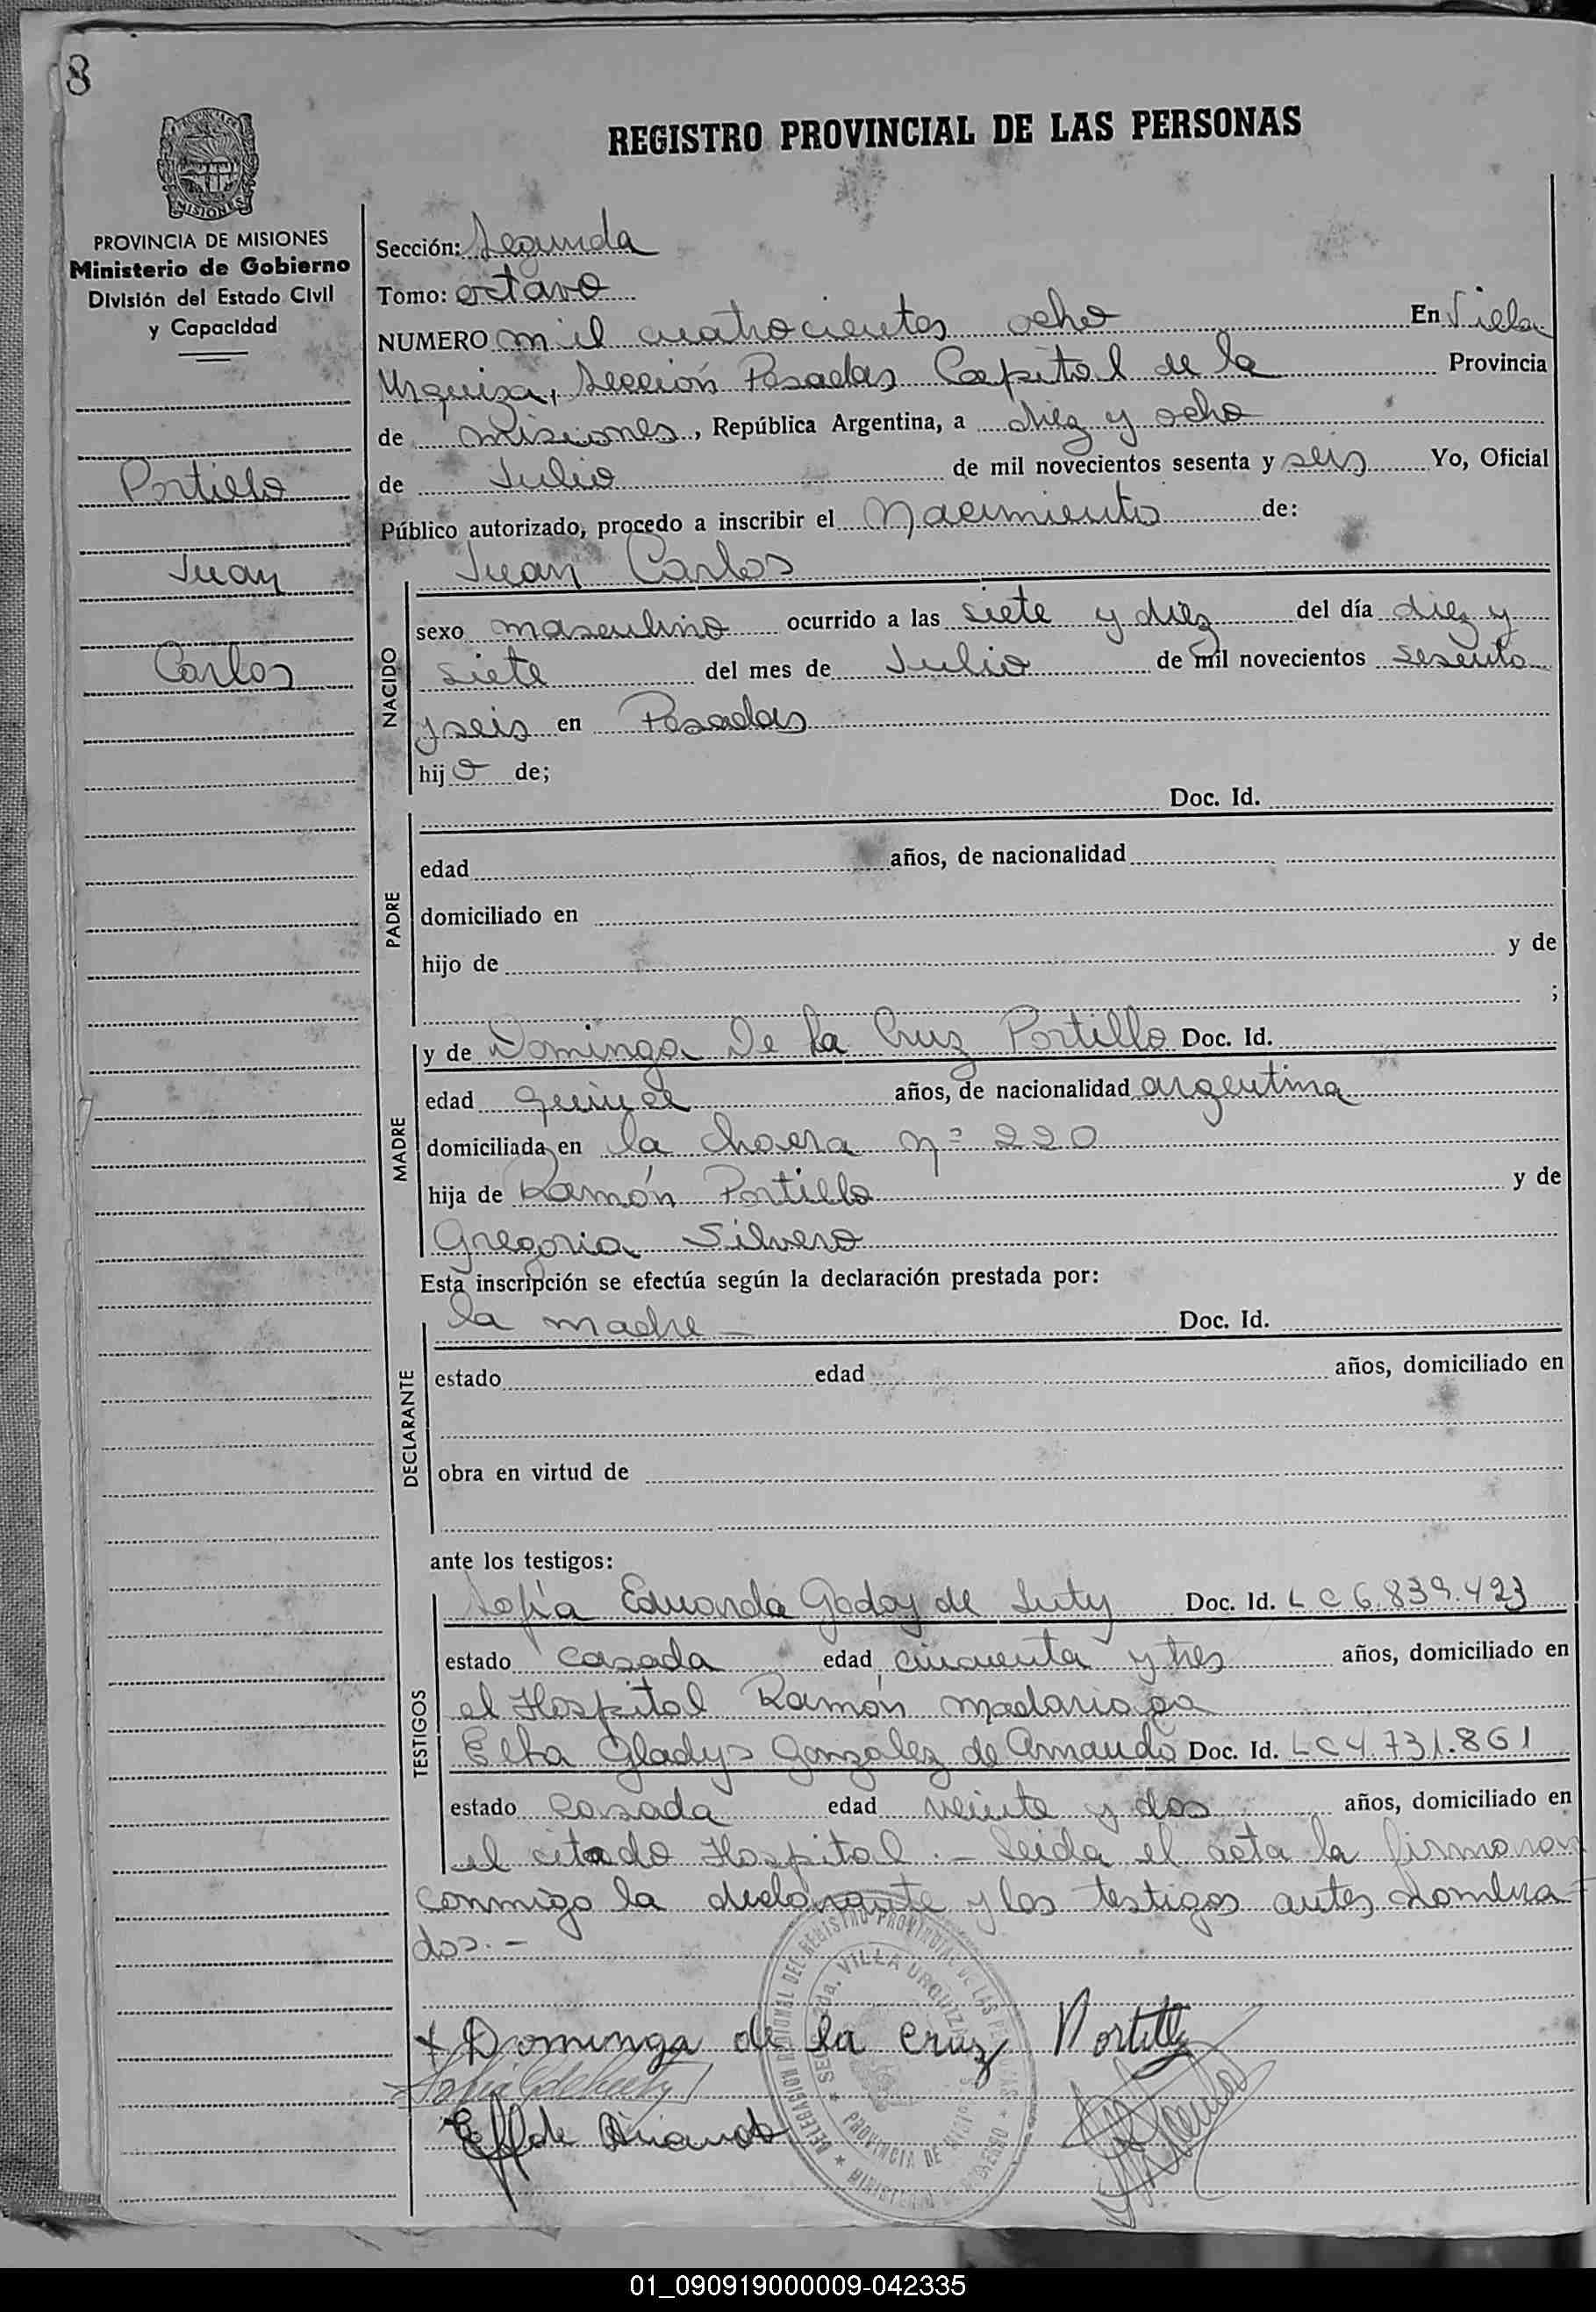 8
REGISTRO PROVINCIAL DE LAS PERSONAS
MISIONES
PROVINCIA DE MISIONES
Ministerio de Gobierno
División del Estado Civil
y Capacidad
Portillo
Juan
Carlos
Sección: Segunda
Tomo: octavo
NUMERO mil cuatrocientos ocho En Villa
Urquiza, Sección Posadas Capital de la Provincia
de Misiones, República Argentina, a diez y ocho
de Julio de mil novecientos sesenta y seis Yo, Oficial
Público autorizado, procedo a inscribir el Nacimiento de:
NACIDO
Juan Carlos
sexo masculino ocurrido a las siete y diez del día diez y
siete del mes de Julio de mil novecientos sesenta
y seis en Posadas
hijo de;
PADRE
Doc. Id.
edad años, de nacionalidad
domiciliado en
hijo de y de
;
MADRE
y de Dominga De la Cruz Portillo Doc. Id.
edad quince años, de nacionalidad argentina
domiciliada en la chacra nº 220
hija de Ramón Portillo y de
Gregoria Silvero
Esta inscripción se efectúa según la declaración prestada por:
DECLARANTE
la madre - Doc. Id.
estado edad años, domiciliado en
obra en virtud de
ante los testigos:
TESTIGOS
Sofía Eduarda Godoy de Doc. Id. L C 6.839.423
estado casada edad cincuenta y tres años, domiciliado en
el Hospital Ramón Madariaga
Elba Gladys Gonzalez de Doc. Id. L C 4.731.861
estado casada edad veinte y dos años, domiciliado en
el citado Hospital.- Leida el acta la firmaron
conmigo la declarante y los testigos antes nombra-
dos.-
DELEGACION REGIONAL DEL REGISTRO PROVINCIAL DE LAS PERSONAS
SEC. 2da. VILLA URQUIZA
PROVINCIA DE MISIONES
MINISTERIO DE GOBIERNO
x Dominga de la Cruz Portillo
01_090919000009-042335